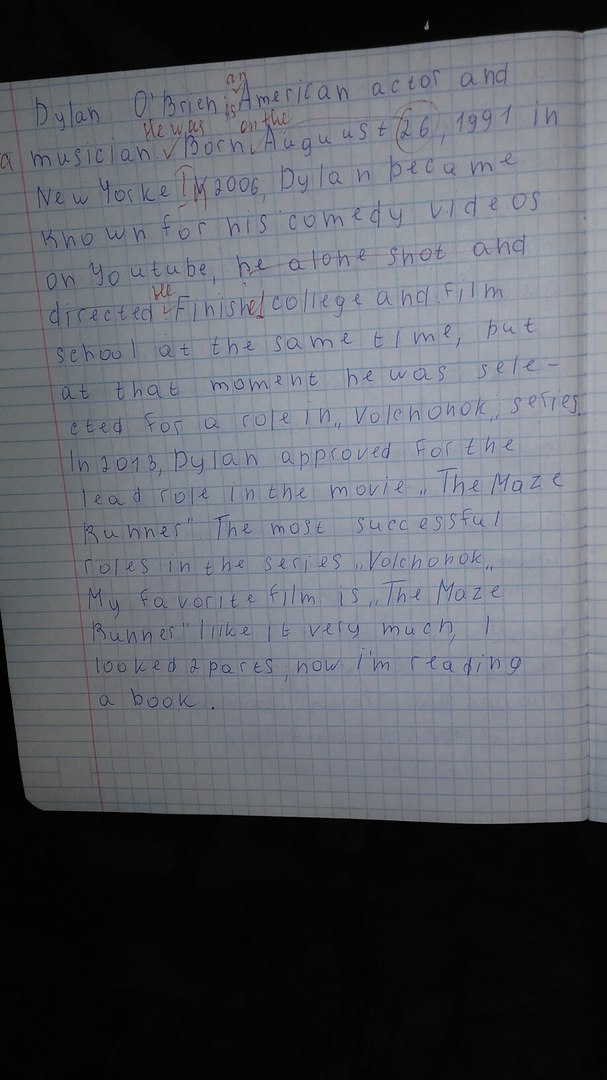 an
Dylan O'Brien is American actor and
He was on the
a musician Born Auguust 26, 1991 in
New Yorke In 2006, Dylan became
Known for his comedy videos
on Youtube, he alone shot and
He
directed Finished college and film
school at the same time, but
at that moment he was sele-
cted for a role in „Volchonok„ series
In 2013, Dylan approved for the
lead role in the movie „The Maze
Runner" The most successful
roles in the series „Volchonok„
My favorite film is „The Maze
Runner" I like it very much, I
looked 2 parts, now i'm reading
a book.